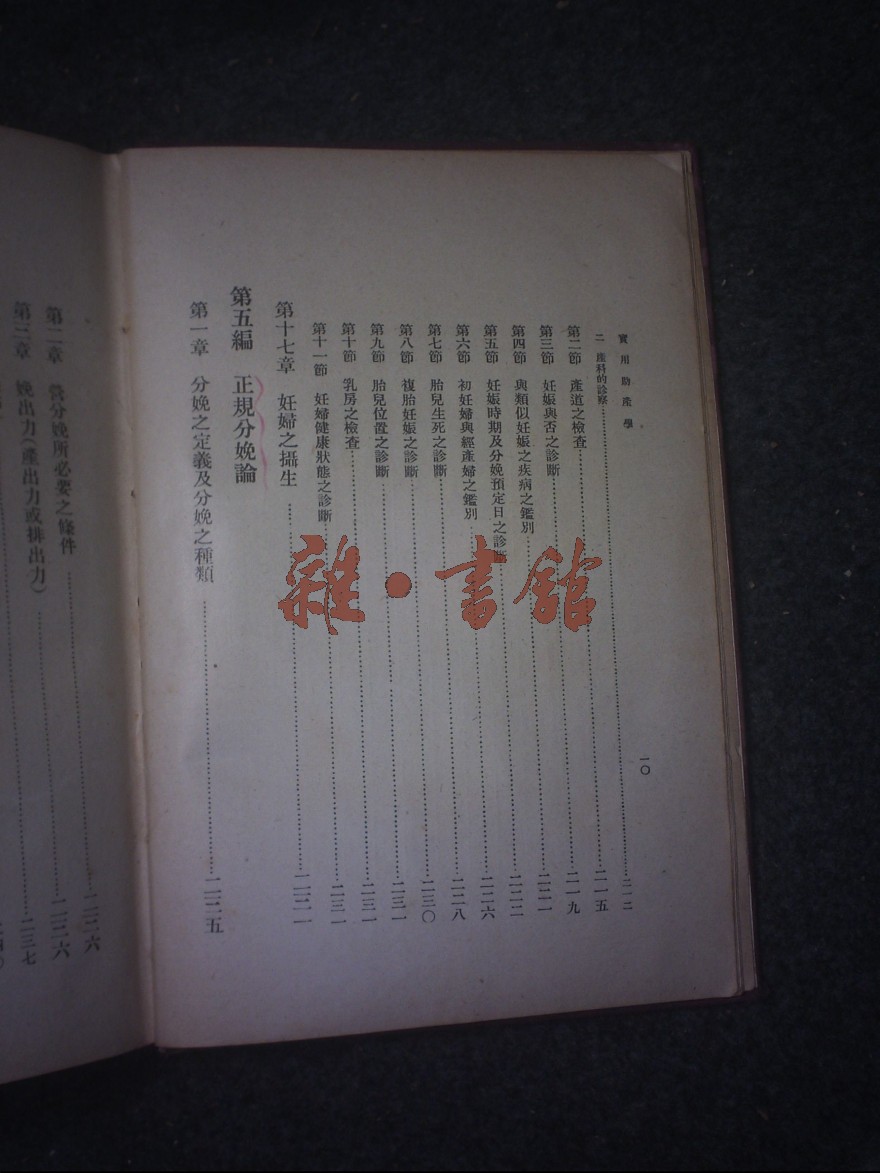 實用助產學
二 產科的診察……二一二
第二節 產道之檢查……二一五
第三節 妊娠與否之診斷……二一九
第四節 與類似妊娠之疾病之鑑別……二二一
第五節 妊娠時期及分娩預定日之診斷……二二二
第六節 初妊婦與經產婦之鑑別……二二六
第七節 胎兒生死之診斷……二二八
第八節 複胎妊娠之診斷……二三〇
第九節 胎兒位置之診斷……二三一
第十節 乳房之檢查……二三一
第十一節 妊婦健康狀態之診斷……二三一
第十七章 妊婦之攝生……
第五編 正規分娩論
第一章 分娩之定義及分娩之種類……二三五
一〇
第二章 營分娩所必要之條件……二三六
第三章 娩出力(產出力或排出力)……二三六
二三七
雜·書館